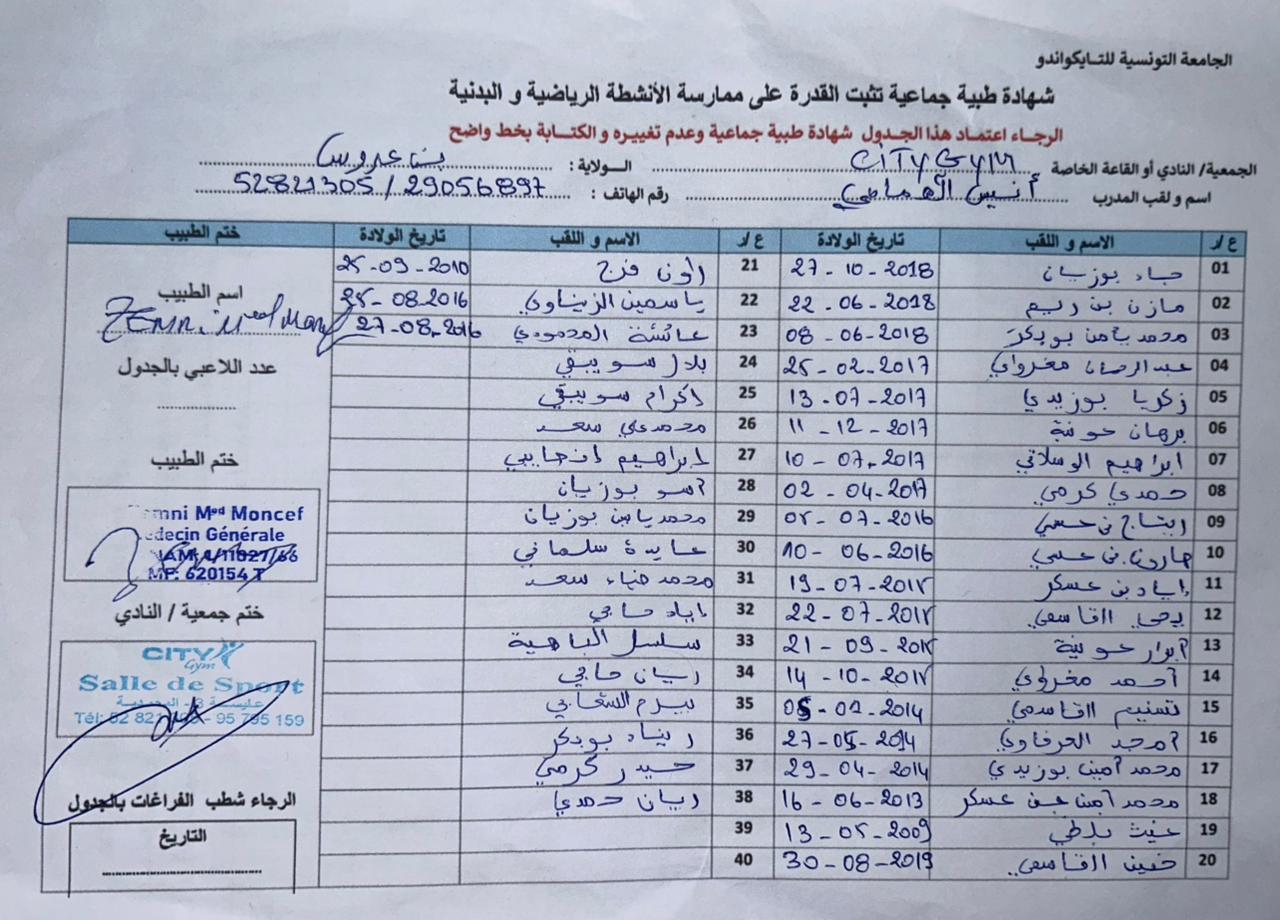 الجامعة التونسية للتايكواندو
شهادة طبية جماعية تثبت القدرة على ممارسة الأنشطة الرياضية و البدنية
الرجاء اعتماد هذا الجدول شهادة طبية جماعية وعدم تغييره و الكتابة بخط واضح
الجمعية/ النادي أو القاعة الخاصة CITY GYM الولاية : بن عروس
اسم و لقب المدرب أنيس رقم الهاتف : 52821305 / 29056897
ع/ر الاسم و اللقب تاريخ الولادة ع/ر الاسم و اللقب تاريخ الولادة ختم الطبيب
01 بوزيان 27-10-2018 21 فرج 25-09-2010
02 مازن بن ريم 22-06-2018 22 ياسمين الزيناوي 25-08-2016
03 محمد يامن بوبكر 08-06-2018 23 عائشة المحمودي 27-08-2016
04 عبد الرحمان مغراوي 25-02-2017 24 بلال سويبقي
05 زكريا بوزيدي 13-07-2017 25 اكرام سويبقي
06 برهان حونية 11-12-2017 26 محمد علي سعد
07 ابراهيم الوسلاتي 10-07-2017 27 ابراهيم
08 حمدي كرمي 02-04-2017 28 بوزيان
09 05-07-2016 29 محمد ياسين بوزيان
10 10-06-2016 30 عايدة سلماني
11 إياد بن عسكر 19-07- 31 محمد ضياء سعد
12 يحي القاسمي 22-07- 32 إياد حاجي
13 أبرار حونية 21-09- 33 الباهية
14 أحمد مغراوي 14-10- 34 ريان حاجي
15 تسنيم القاسمي 2014 35 بيرم
16 أمجد العرفاوي 27-05-2014 36 ريتاد بوبكر
17 محمد أمين بوزيدي 29-04-2014 37 حيدر كرمي
18 محمد أمين بن عسكر 16-06-2013 38 ريان حمدي
19 غيث 13-05-2009 39
20 حنين القاسمي 30-08-2019 40
اسم الطبيب
عدد اللاعبي بالجدول
ختم الطبيب
Med Moncef
Médecin Générale
MF: 620154 T
ختم جمعية / النادي
CITY
Gym
Salle de Sport
Tél: 52 82 - 95 795 159
الرجاء شطب الفراغات بالجدول
التاريخ